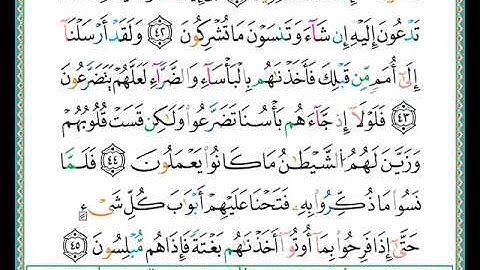 تَدْعُونَ إِلَيْهِ إِن شَآءَ وَتَنسَوْنَ مَا تُشْرِكُونَ ٤٢ وَلَقَدْ أَرْسَلْنَآ
إِلَىٰٓ أُمَمٍ مِّن قَبْلِكَ فَأَخَذْنَٰهُم بِالْبَأْسَآءِ وَالضَّرَّآءِ لَعَلَّهُمْ يَتَضَرَّعُونَ
٤٣ فَلَوْلَآ إِذْ جَآءَهُم بَأْسُنَا تَضَرَّعُوا۟ وَلَٰكِن قَسَتْ قُلُوبُهُمْ
وَزَيَّنَ لَهُمُ الشَّيْطَٰنُ مَا كَانُوا۟ يَعْمَلُونَ ٤٤ فَلَمَّا
نَسُوا۟ مَا ذُكِّرُوا۟ بِهِۦ فَتَحْنَا عَلَيْهِمْ أَبْوَٰبَ كُلِّ شَىْءٍ
حَتَّىٰٓ إِذَا فَرِحُوا۟ بِمَآ أُوتُوٓا۟ أَخَذْنَٰهُم بَغْتَةً فَإِذَا هُم مُّبْلِسُونَ ٤٥